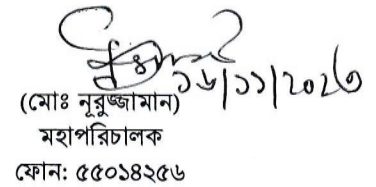 ১৬/১১/২০২৩
(মোঃ নূরুজ্জামান)
মহাপরিচালক
ফোন: ৫৫০১৪২৫৬